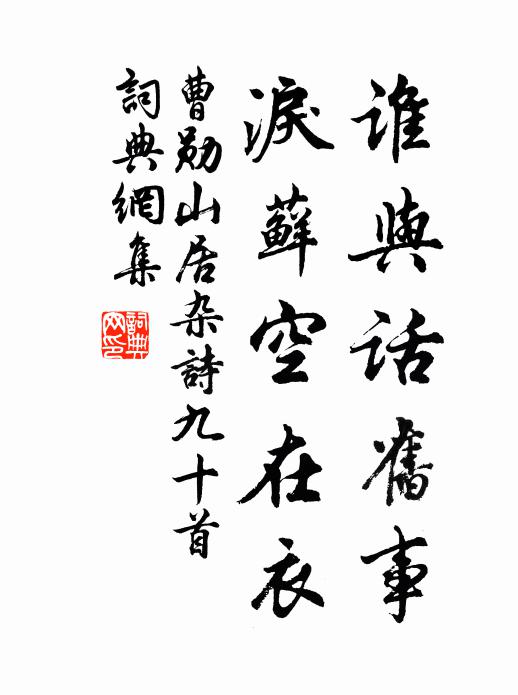 誰與話舊事
淚蘚空在衣
曹勛山居杂詩九十首
詞典網集
詞典網印